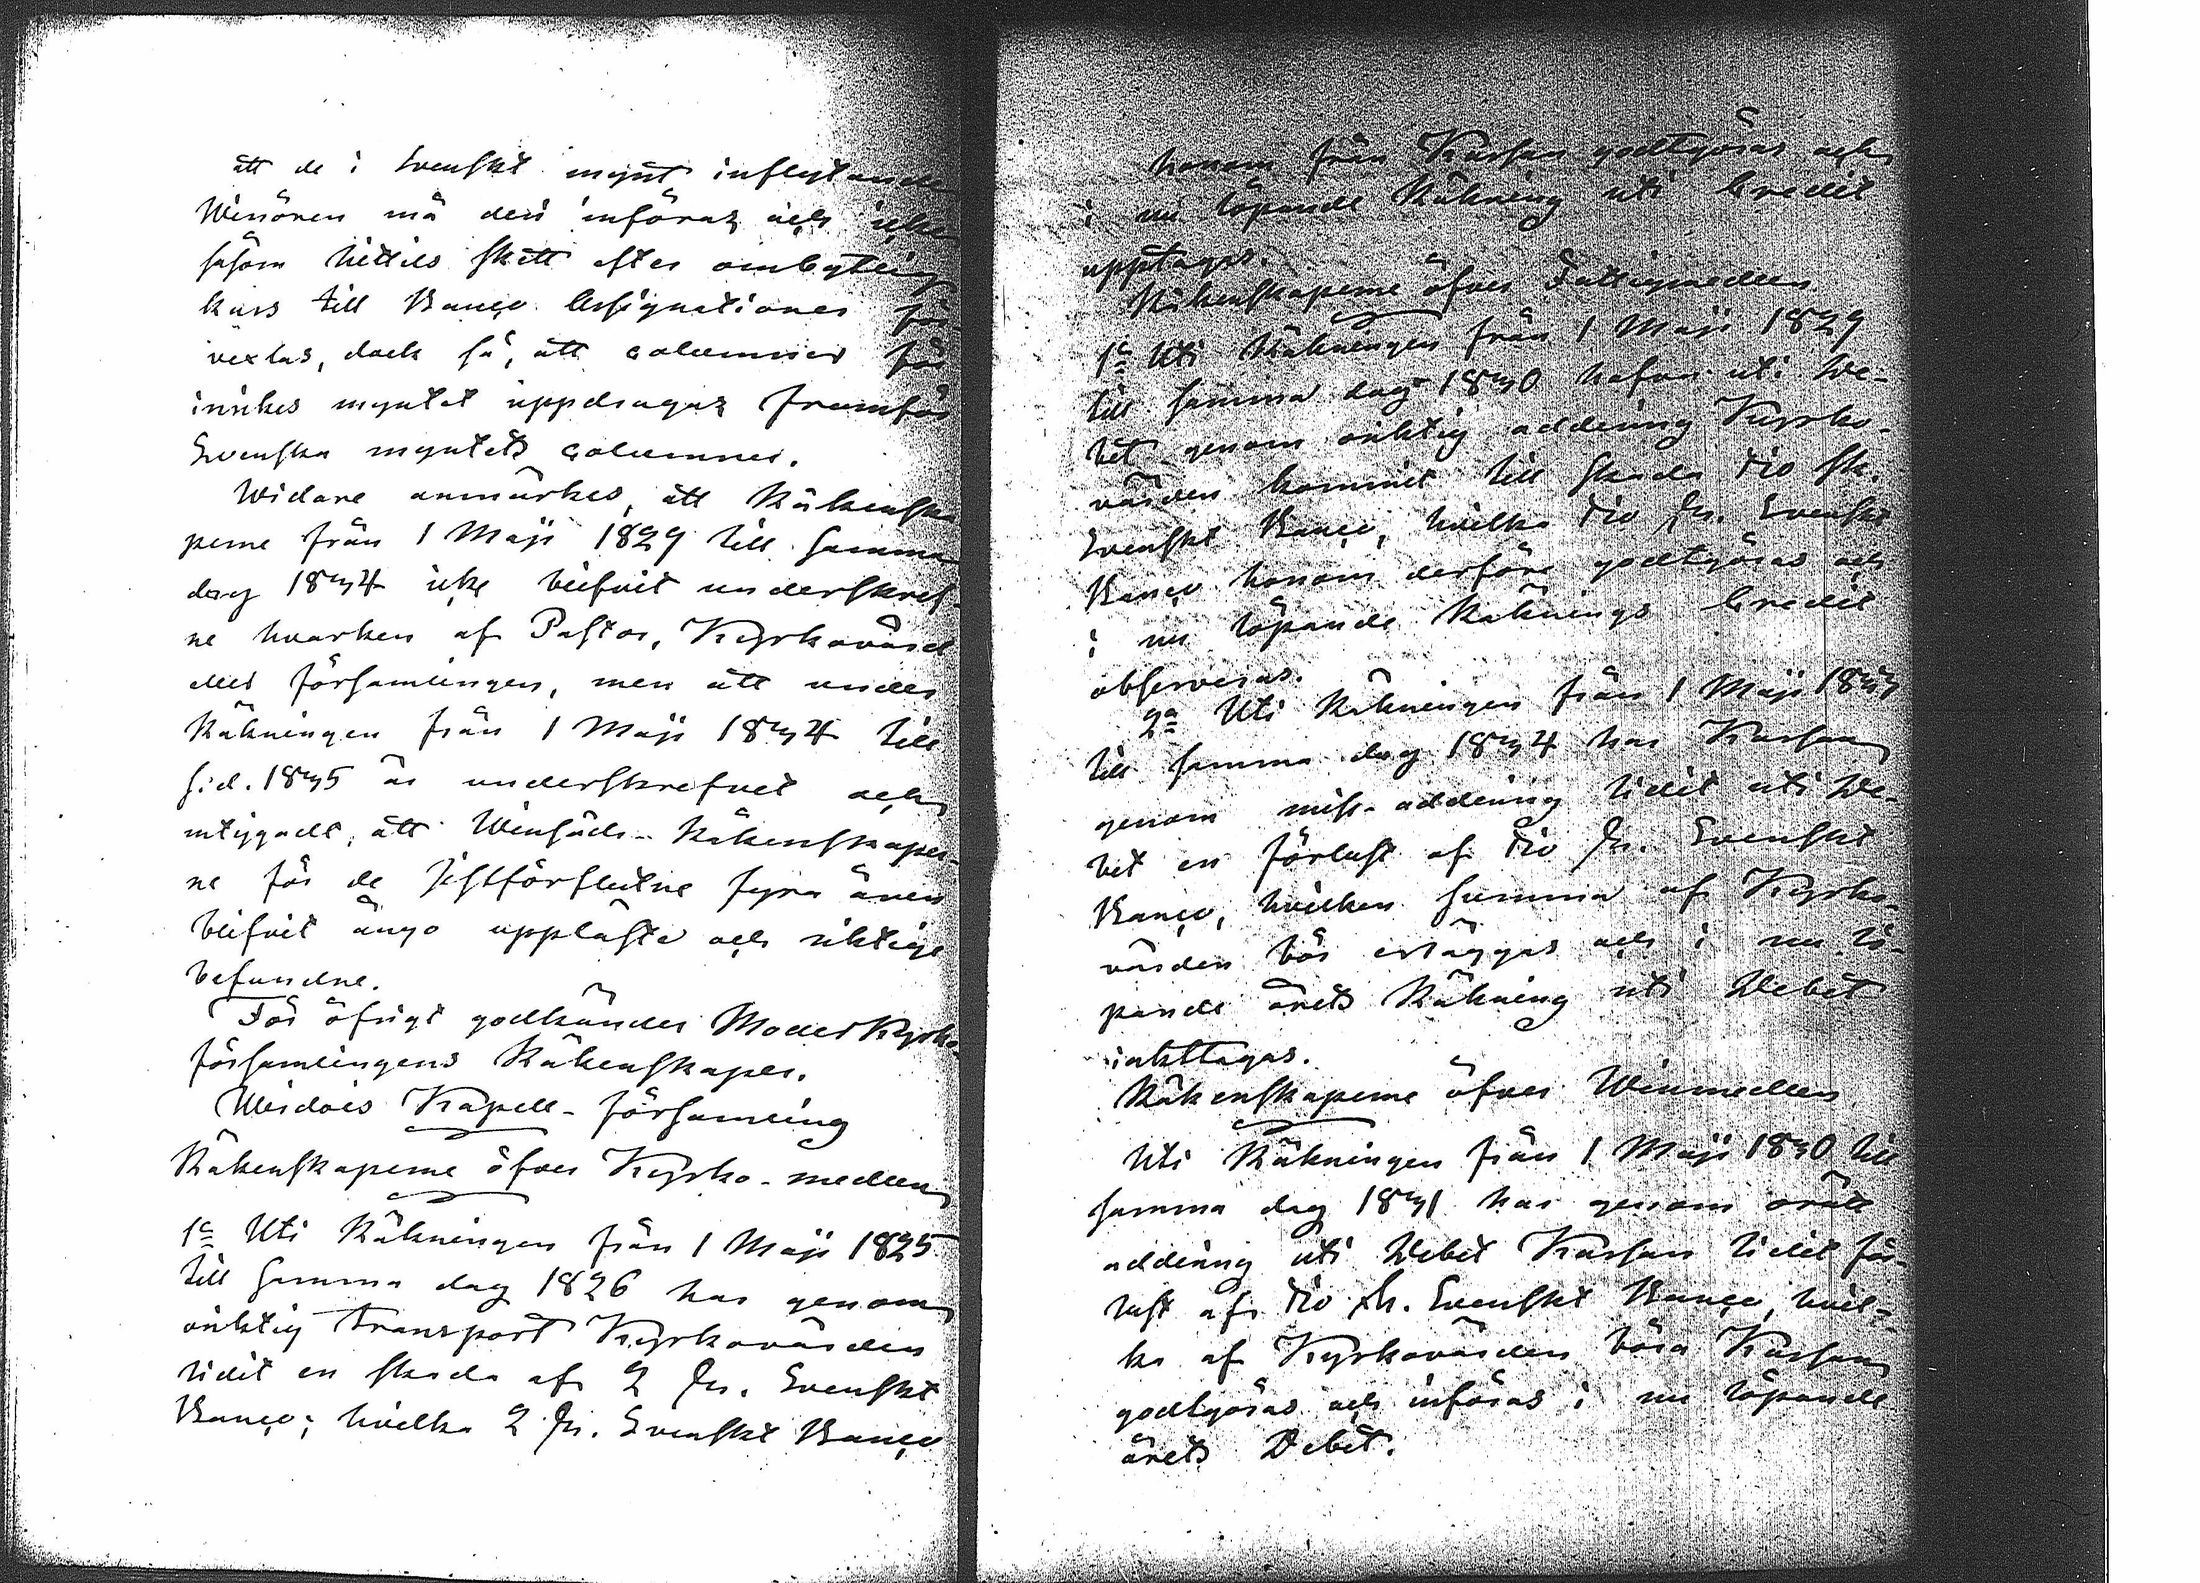 att de i Svenskt mynt inflytande
Winören må deri införas och icke
såsom hittils skett efter ombytlig
kurs till Banco Assignationer för-
vexlas, dock så, att columner för
inrikes myntet uppdragas framför
Svenska myntets columner.
Widare anmärkes, att Räkenska
perne från 1 Maji 1829 till samma
dag 1834 icke blifvit underskref-
ne hvarken af Pastor, Kyrkovärd
eller församlingen, men att under
Räkningen från 1 Maji 1834 till
s.d. 1835 är underskrefvet och
intygadt, att Winsäds-Räkenskaper-
ne för de sistförflutne fyra åren
blifvit ånyo uppläste och riktige
befundne.
För öfrigt godkändes Moderkyrko-
församlingens Räkenskaper.
Werdois Kapell-församling
Räkenskaperne öfver Kyrko-medlen
1o Uti Räkningen från 1 Maji 1825
till samma dag 1826 har genom
oriktig transport Kyrkovärden
lidit en skada af 2 sk. Svenskt
Banco; hvilka 2 sk. Svenskt Banco
honom från Kassan godtgöras och
i nu löpande Räkning uti Credit
upptages.
Räkenskaperne öfver Fattigmedlen
1o Uti Räkningen från 1 Maji 1829
till samma dag 1830 hafva uti De-
bet genom oriktig addering Kyrko-
värden kommit till skada tio sk.
Svenskt Banco, hvilka tio sk. Svenskt
Banco honom derföre godtgöras och
i nu löpande Räknings Credit
observeras.
2o Uti Räkningen från 1 Maji 1833
till samma dag 1834 har Kassan
genom miss-addering lidit uti De-
bet en förlust af tio sk. Svenskt
Banco, hvilken summa af Kyrko-
värden bör erläggas och i nu lö-
pande årets Räkning uti Debet
iakttagas.
Räkenskaperne öfver Winmedlen
Uti Räkningen från 1 Maji 1830 till
samma dag 1831 har genom orätt
addering uti Debet Kassan lidit för-
lust af tio sk. Svenskt Banco, hvil-
ka af Kyrkovärden böra Kassan
godtgöras och införas i nu löpande
årets Debet.